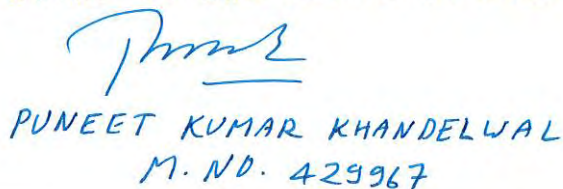 PUNEET KUMAR KHANDELWAL
M. NO. 429967